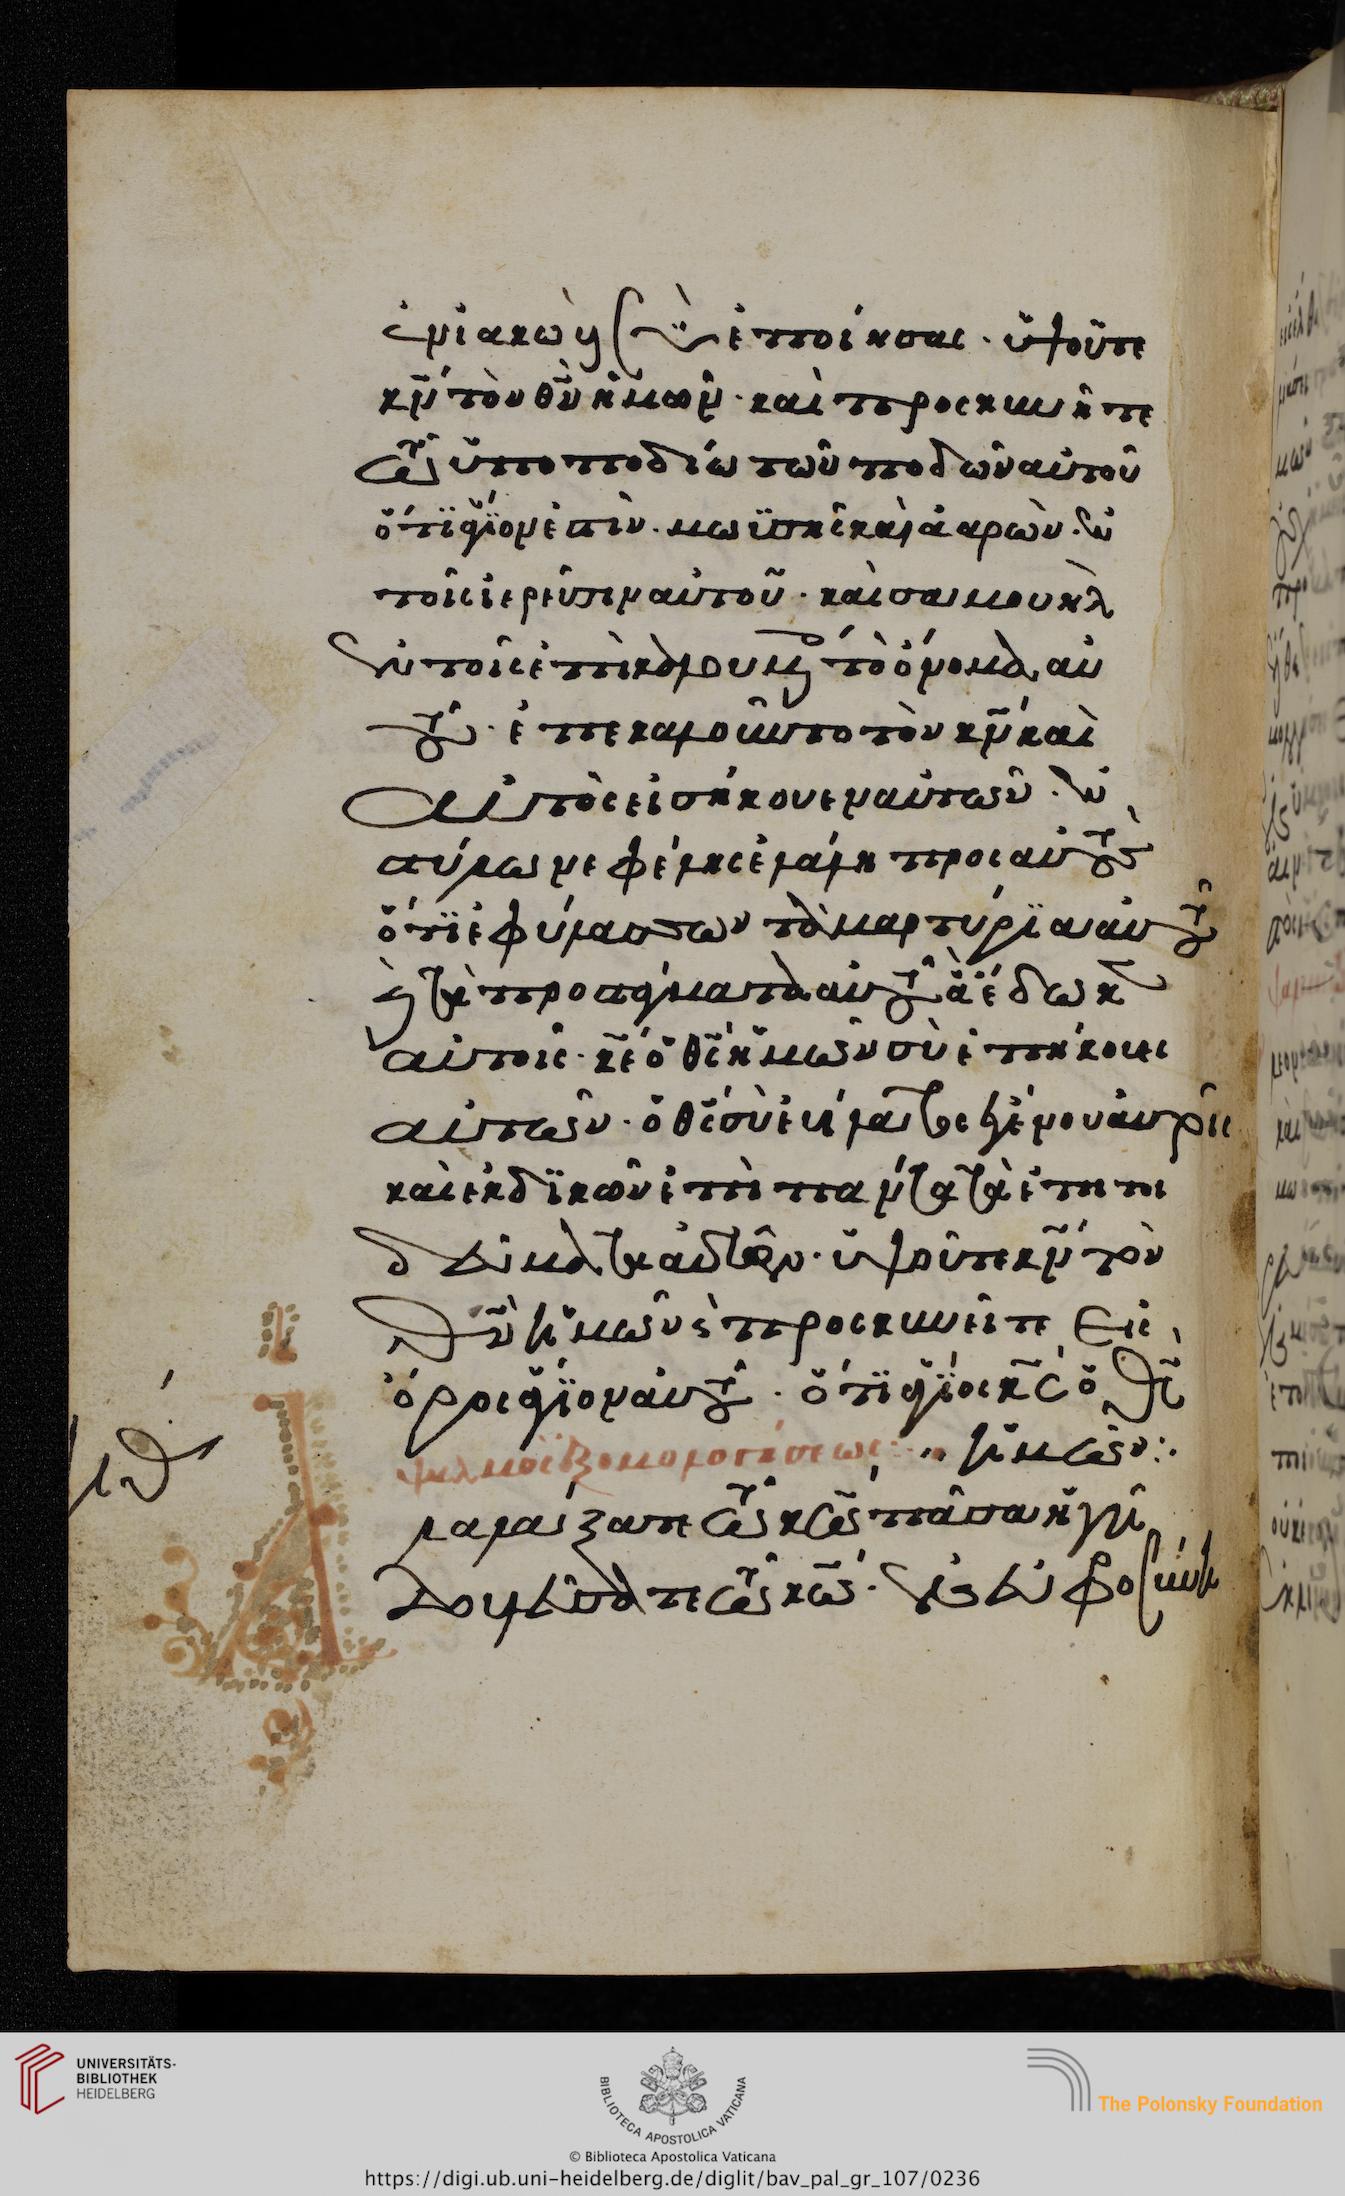 ἐν ἰακὼβ σὺ ἐποίησας · ὑψοῦτε
κν τὸν θν ἡμῶν · καὶ προσκυνῆτε
τῶ ὑποποδίω τῶν ποδῶν αὐτοῦ
ὅτι ἅγιον ἐστὶν · μωϋσῆς καὶ ἀαρὼν · ἐν
τοῖς ἱερεῦσιν αὐτοῦ · καὶ σαμουὴλ
ἐν τοῖς ἐπικαλουμένοις τὸ ὄνομα αὐ
τοῦ · ἐπεκαλοῦντο τὸν κν καὶ
αὐτὸς εἰσήκουεν αὐτῶν · ἐν
στύλω νεφέλης ἐλάλη προς αὐτοὺς
ὅτι ἐφύλασσων τὰ μαρτύρια αὐτοῦ
καὶ τὰ προστάγματα αὐτοῦ ἃ ἔδωκεν
αὐτοῖς · κε ὁ θς ἡμῶν σὺ ἐπήκουες
αὐτῶν · ὁ θς σὺ εὐίλατος ἐγένου αὐτοῖς
καὶ ἐκδικῶν ἐπὶ πάντα τὰ ἐπιτη
δεύματα αὐτῶν · ὑψοῦτε κν τὸν
θν ἡμῶν καὶ προσκυνεῖτε εἰς
ὄρος ἅγιον αὐτοῦ · ὅτι ἅγιος κς ὁ θς
ψαλμὸς ἐξομολογήσεως ἡμῶν :.
ϟθ
Ἀλαλάξατε τῶ κω πᾶσα ἡ γῆ
δουλεύσατε τῶ κω · ἐν εὐφροσύνη
UNIVERSITÄTS-
BIBLIOTHEK
HEIDELBERG
BIBLIOTECA APOSTOLICA VATICANA
© Biblioteca Apostolica Vaticana
The Polonsky Foundation
https://digi.ub.uni-heidelberg.de/diglit/bav_pal_gr_107/0236